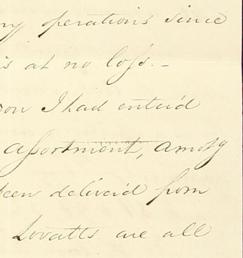 ry operations since
is at no loss. _
on I had enter'd
assortment, among
een deliver'd from
Lovatts are all